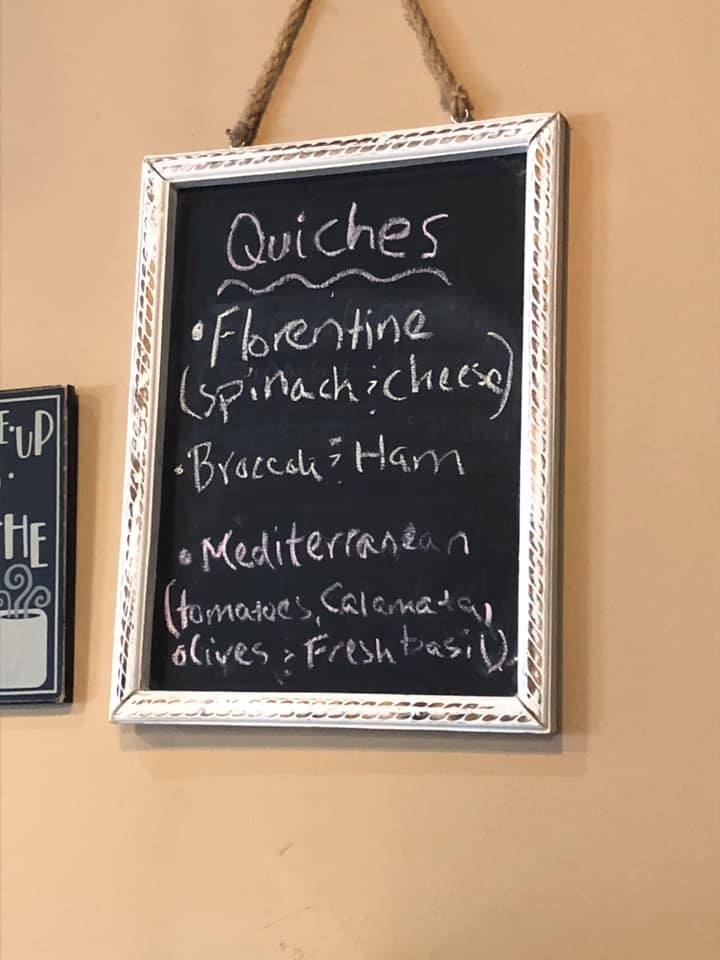 Quiches
• Florentine
(spinach & cheese)
• Broccoli & Ham
• Mediterranean
(tomatoes, Calamata,
olives & Fresh basil)
E•UP
HE